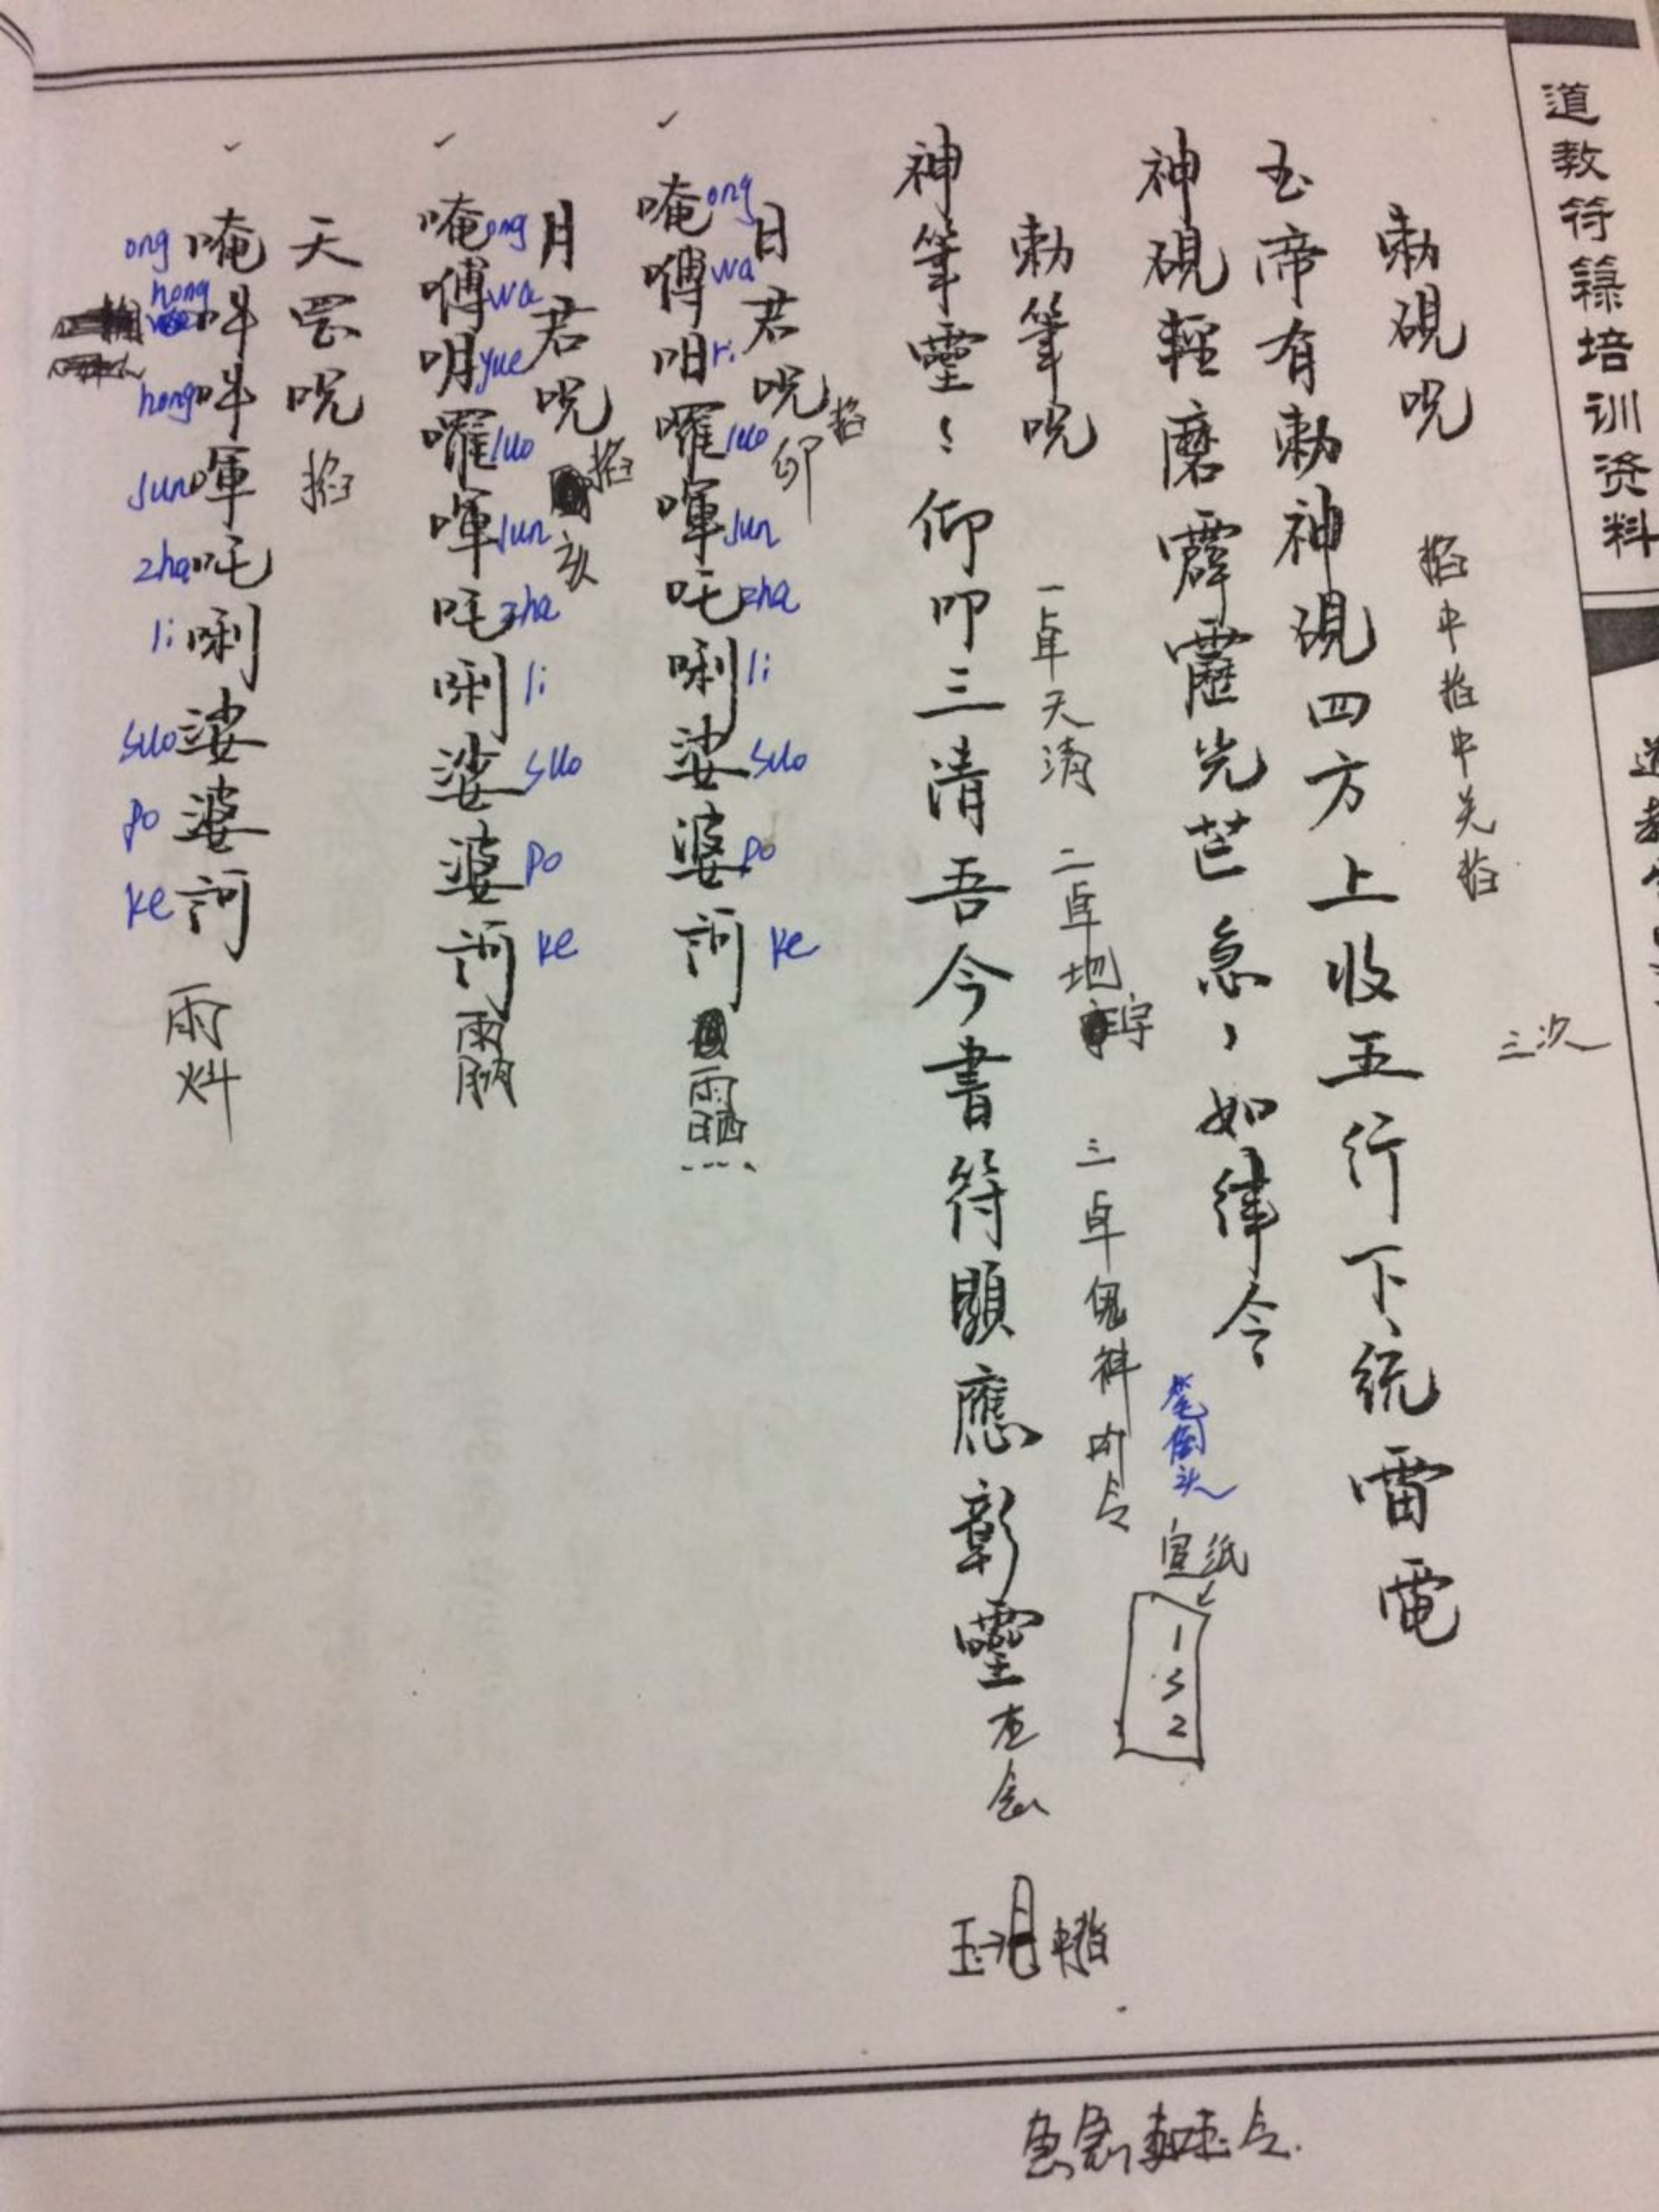 道教符籙培训资料
勅硯咒
掐中指中关指
三次
玉帝有勅神硯四方上收五行下統雷電
神硯輕磨霹靂光芒急〻如律令
笔倒头
宣纸
1
3
2
勅筆咒
一卓天清 二卓地宁 三卓鬼神听令
神筆靈〻仰叩三清吾今書符顯應彰靈
中指
日君咒
掐
卯
唵嚩𠯈囉喗吒唎娑婆訶
ong wa ri luo jun zha li suo po ke
月君咒
掐
亥
唵嚩明囉喗吒唎娑婆訶
ong wa yue luo jun zha li suo po ke
天罡咒
掐
唵吽吽喗吒唎娑婆訶
ong hong hong jun zha li suo po ke